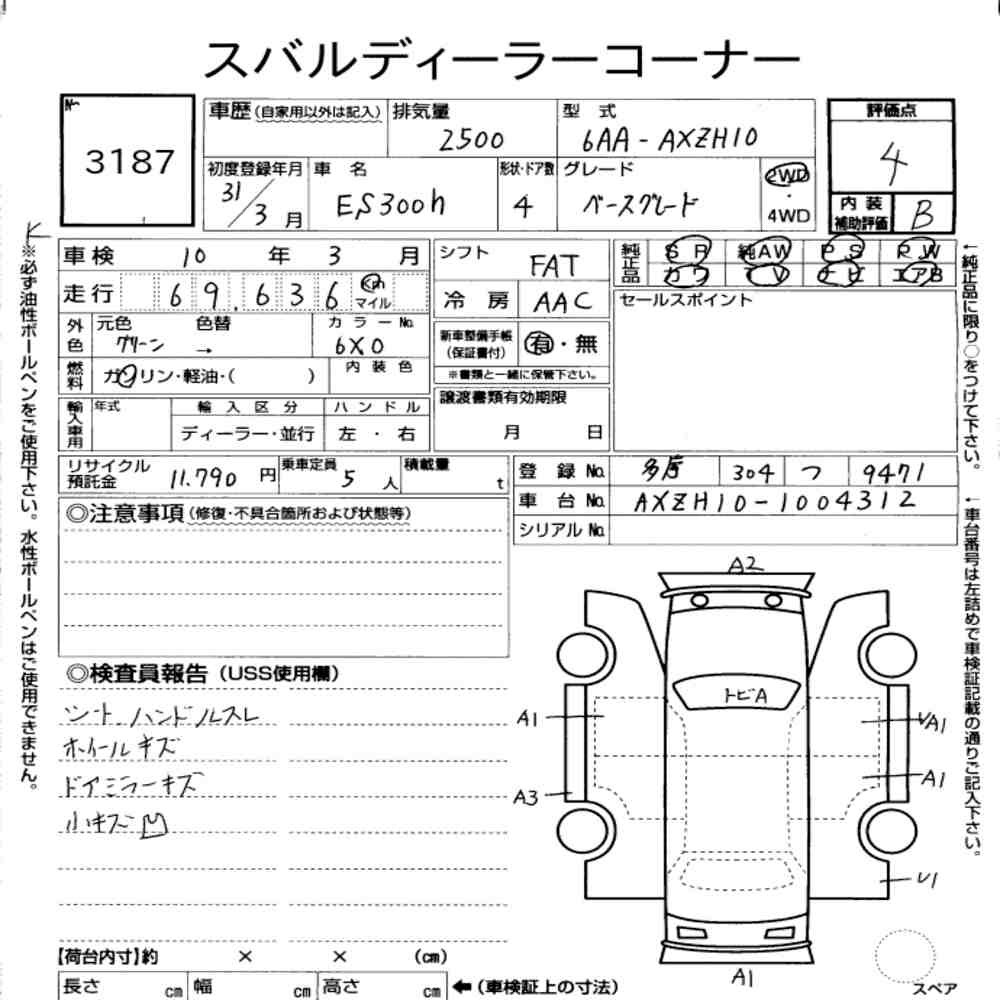 スバルディーラーコーナー
№ 3187
車歴(自家用以外は記入) 排気量 2500 型 式 6AA-AXZH10
初度登録年月 31/3月 車 名 ES300h 形状・ドア数 4 グレード ベースグレード 2WD・4WD
評価点 4
内 装 補助評価 B
車検 10 年 3 月
走行 69.636 Km マイル
外色 元色 グリーン → 色替 カラーNo. 6X0
燃料 ガソリン・軽油・( ) 内 装 色
輸入車用 年式 輸 入 区 分 ディーラー・並行 ハ ン ド ル 左 ・ 右
シフト FAT
冷 房 AAC
新車整備手帳(保証書付) 有・無
※書類と一緒に保管下さい。
譲渡書類有効期限
月 日
純正品 SR 純AW PS RW
カワ TV ナビ エアB
セールスポイント
リサイクル預託金 11.790 円 乗車定員 5 人 積載量 t
登 録 No. 多摩 304 つ 9471
車 台 No. AXZH10-1004312
シリアル No.
◎注意事項(修復・不具合箇所および状態等)
◎検査員報告(USS使用欄)
シート ハンドルスレ
ホイールキズ
ドアミラーキズ
小キズ凹
A2
トビA
A1
UA1
A1
A3
U1
A1
スペア
【荷台内寸】約 × × (cm)
長さ cm 幅 cm 高さ cm ←(車検証上の寸法)
K
※必ず油性ボールペンをご使用下さい。水性ボールペンはご使用できません。
↓純正品に限り○をつけて下さい。
↓車台番号は左詰めで車検証記載の通りご記入下さい。